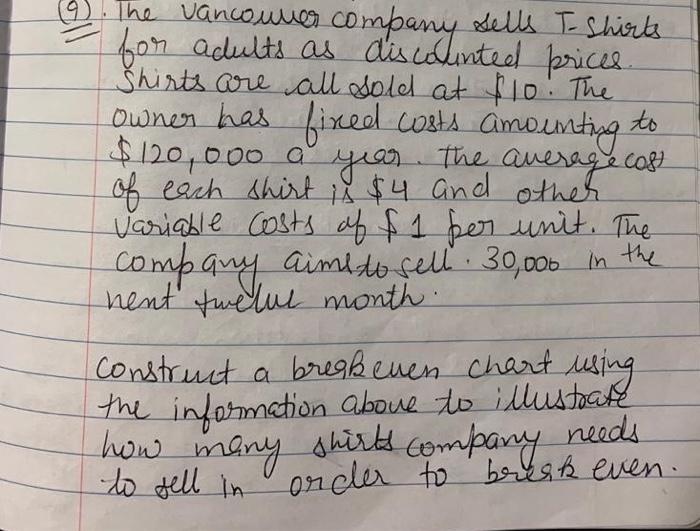 (9). The vancouver company sells T-Shirts
for adults as discounted prices.
Shirts are all sold at $10. The
owner has fixed costs amounting to
$120,000 a year. The average cost
of each shirt is $4 and other
variable costs of $1 per unit. The
company aims to sell. 30,000 in the
next twelve month.
Construct a break even chart using
the information above to illustrate
how many shirts company needs
to sell in order to break even.